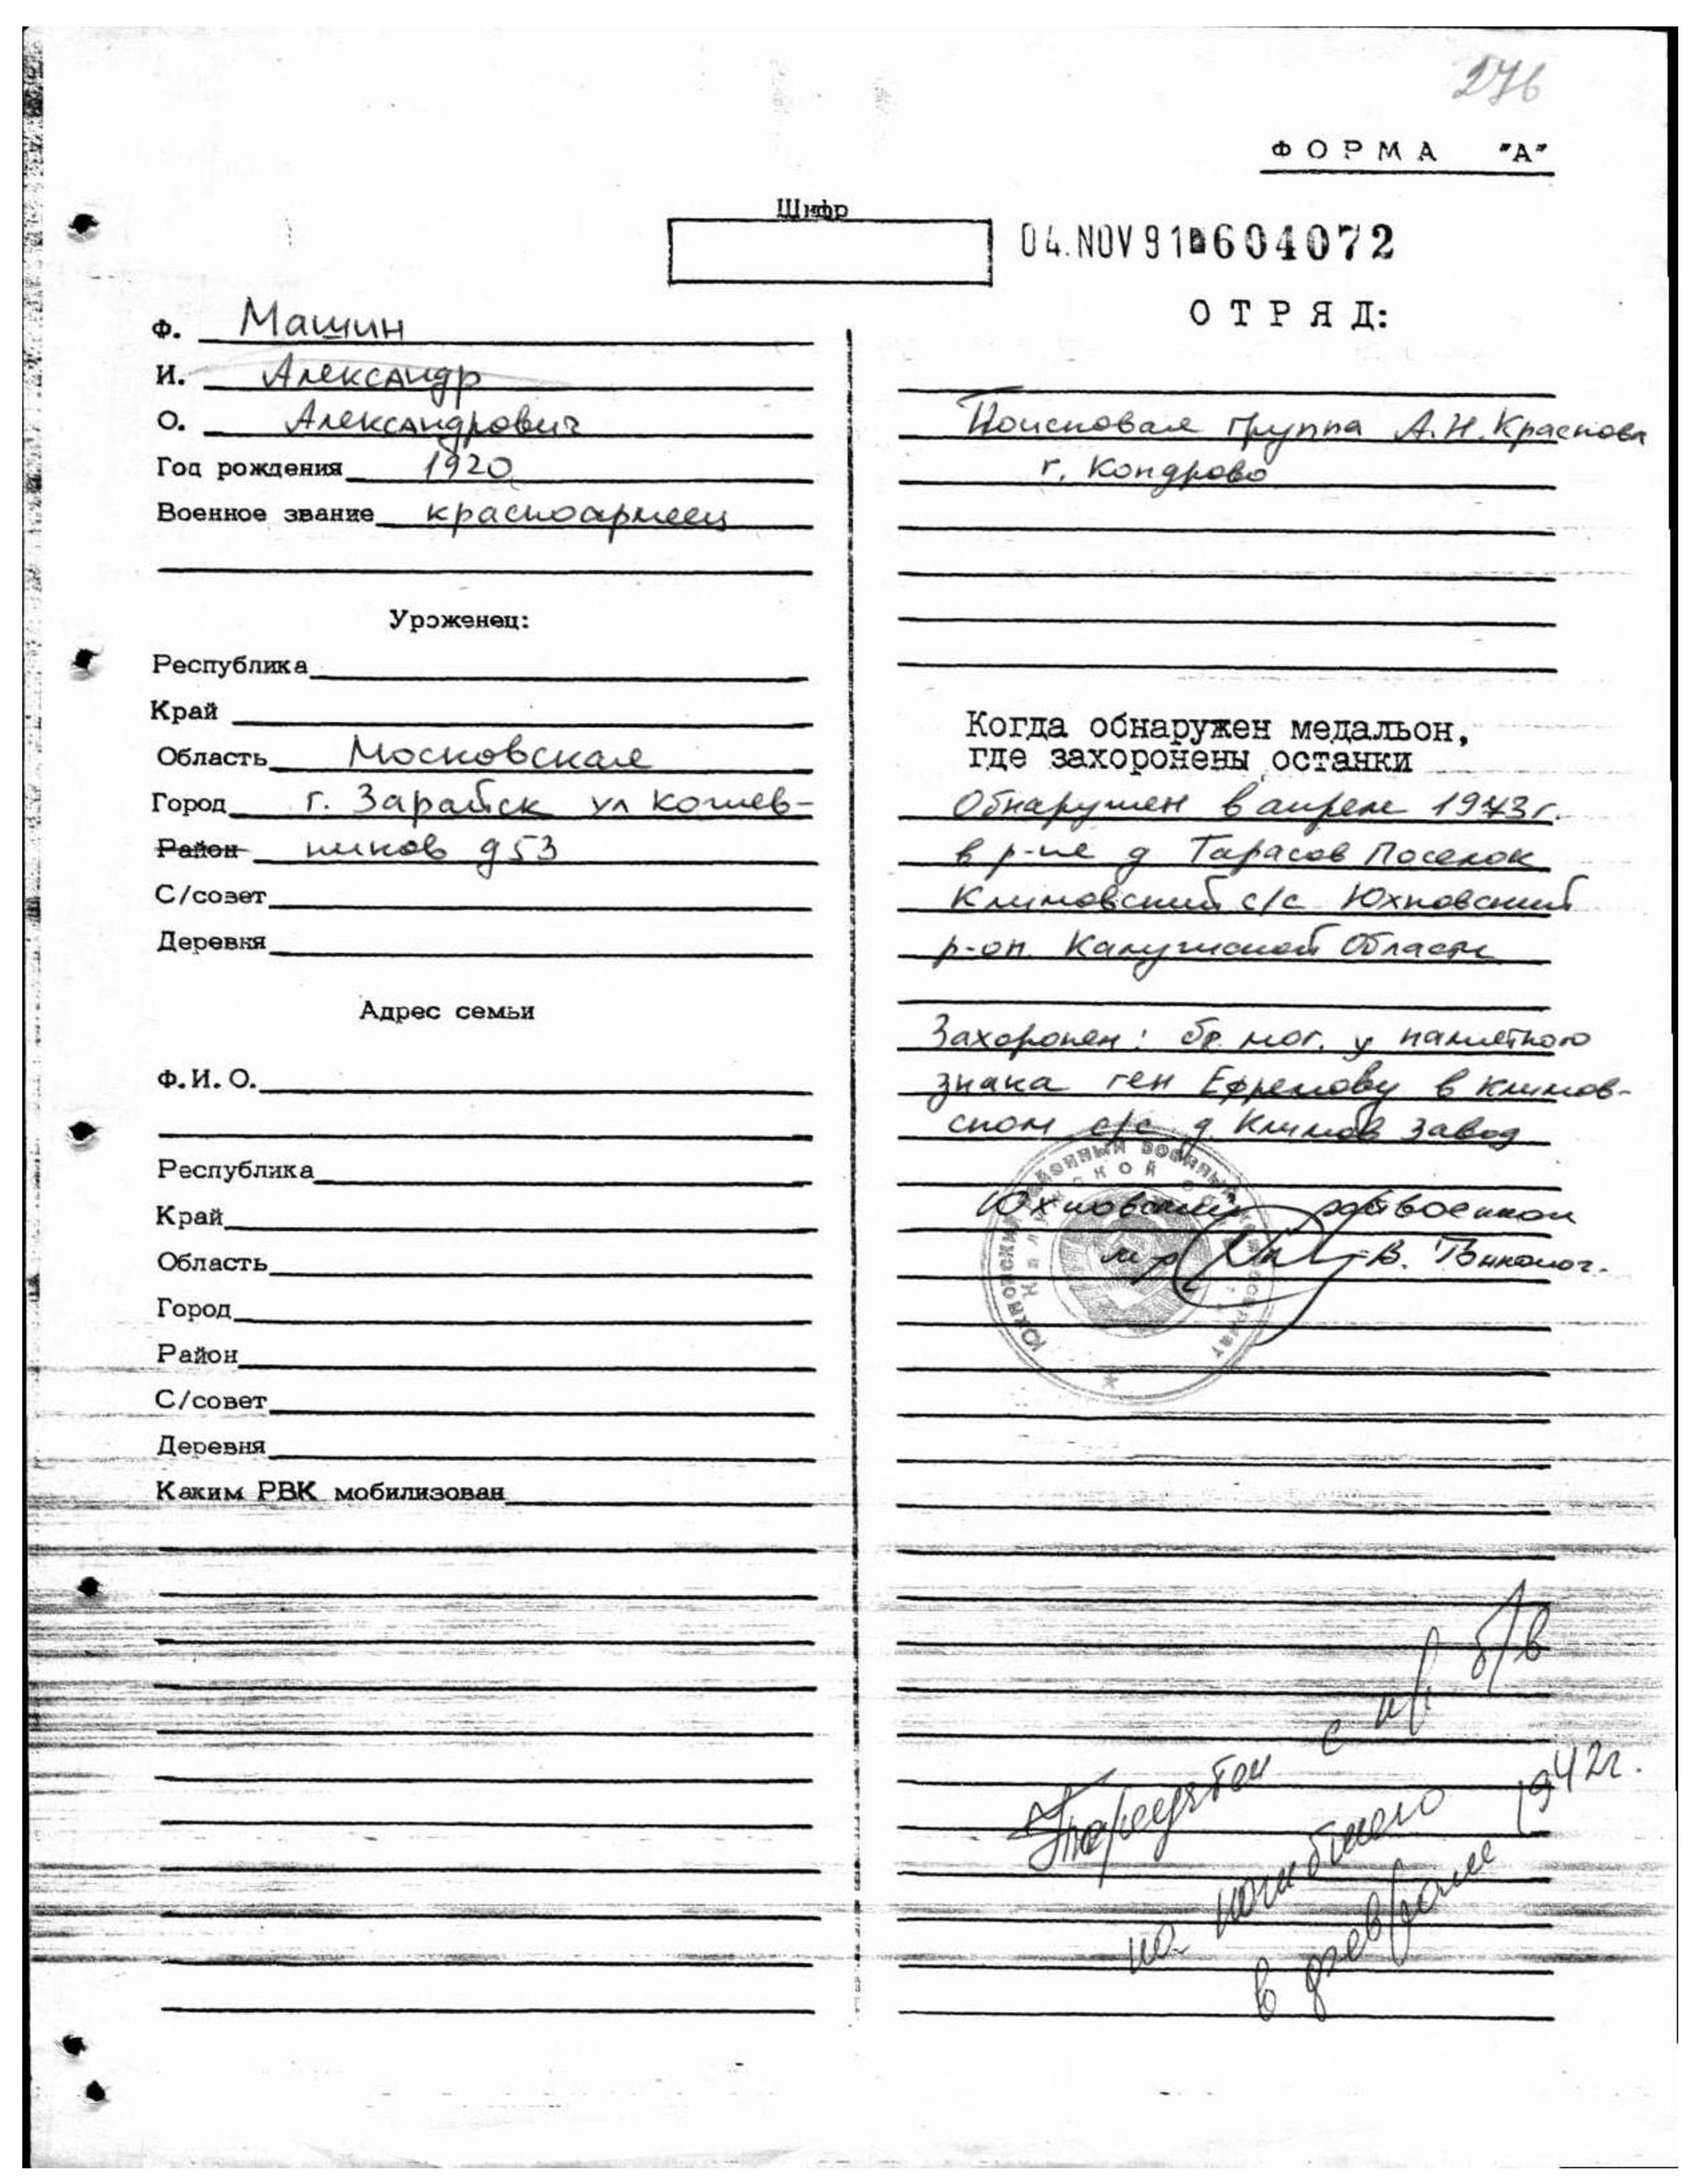 276
ФОРМА "А"
Шифр
04.NOV 91 604072
ОТРЯД:
Ф. Машин
И. Александр
О. Александрович
Год рождения 1920
Военное звание красноармеец
Уроженец:
Республика
Край
Область Московская
Город г. Зарайск ул Кожев-
Район ников д53
С/совет
Деревня
Адрес семьи
Ф.И.О.
Республика
Край
Область
Город
Район
С/совет
Деревня
Каким РВК мобилизован
Поисковая группа А.Н. Краснова
г. Кондрово
Когда обнаружен медальон,
где захоронены останки
Обнаружен в апреле 1973г.
в р-не д Тарасов Поселок
Климовский с/с Юхновский
р-он. Калужской Области
Захоронен: бр. мог. у памятного
знака ген Ефремову в Климов-
ском с/с д. Климов Завод
Юхновский райвоенком
м-р В.
Юхновский районный военный комиссариат
Калужской обл.
с пр б/в
на погибшего
в феврале 1942г.